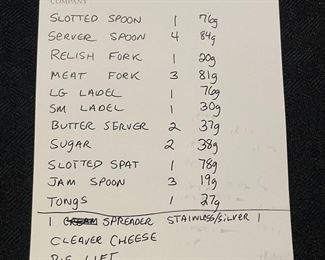 COMPANY
SLOTTED SPOON 1 76g
SERVER SPOON 4 84g
RELISH FORK 1 20g
MEAT FORK 3 81g
LG LADEL 1 76g
SM LADEL 1 30g
BUTTER SERVER 2 37g
SUGAR 2 38g
SLOTTED SPAT 1 78g
JAM SPOON 3 19g
TONGS 1 27g
1 SPREADER STAINLESS/SILVER 1
CLEAVER CHEESE
PIE LIFT